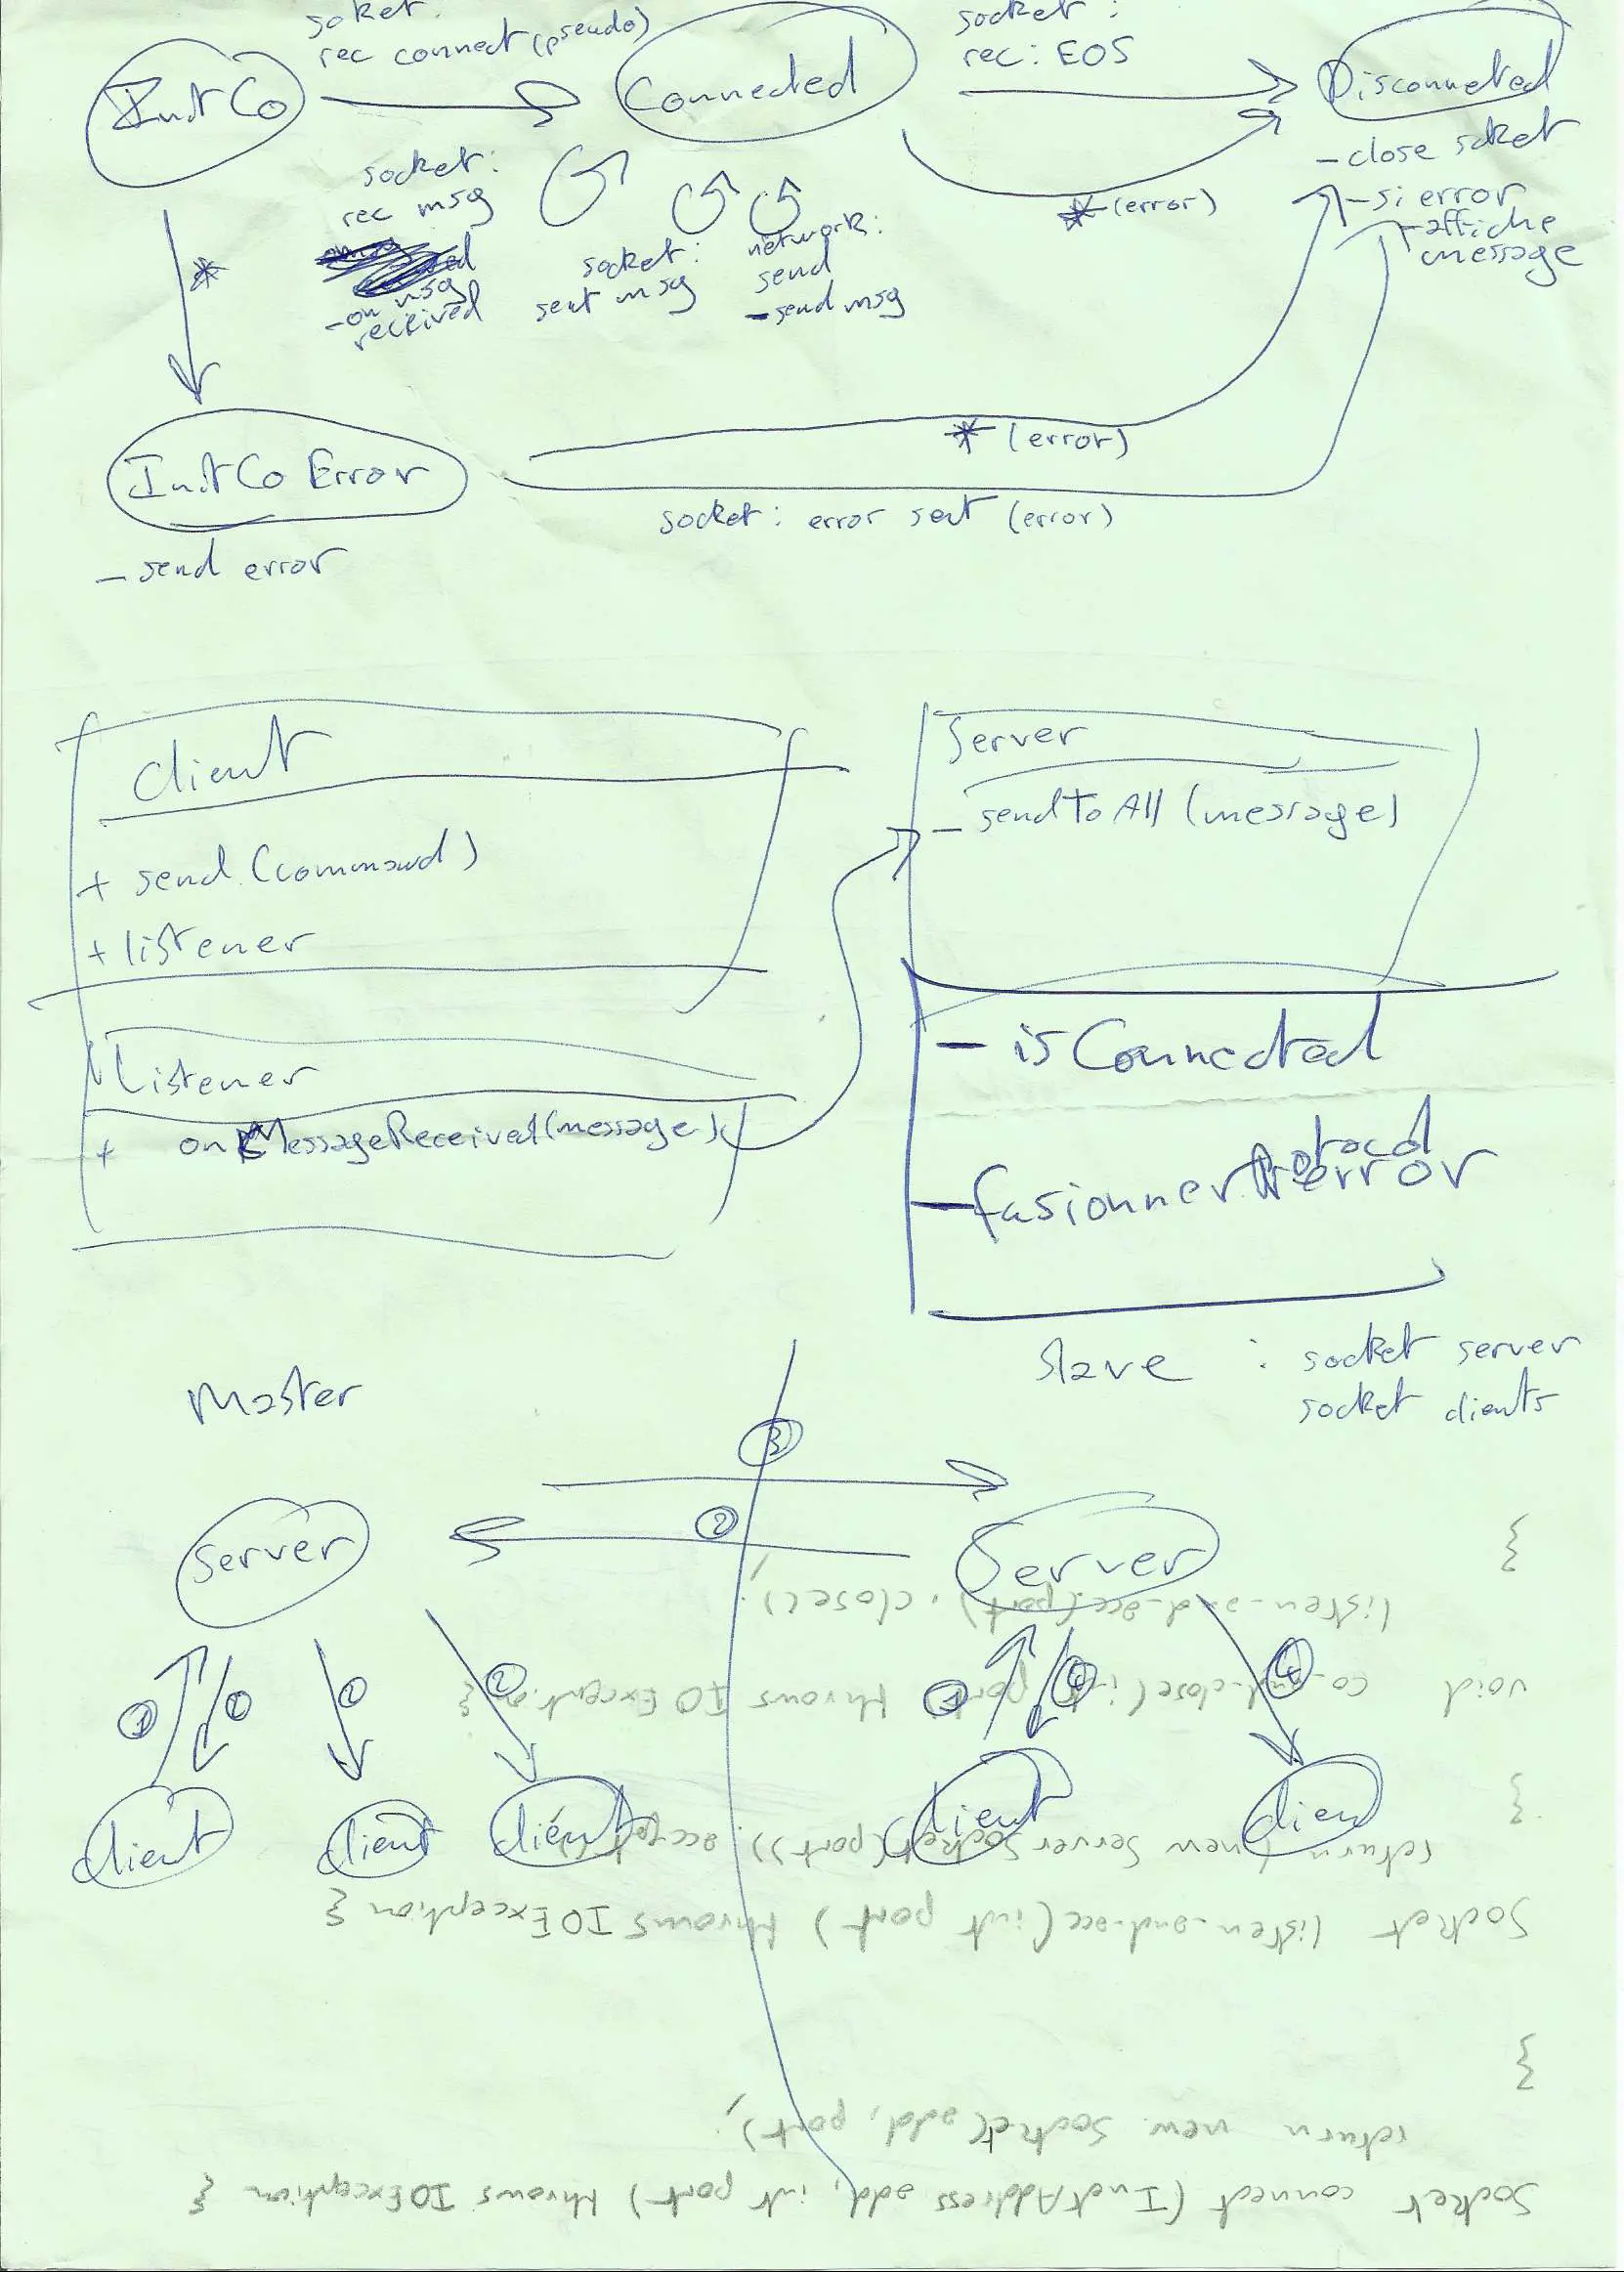 socket:
rec connect (pseudo)
InitCo
Connected
socket :
rec : EOS
Disconnected
- close socket
- si error
- affiche
message
socket:
rec msg
- on msg
received
socket:
sent msg
network:
send
- send msg
* (error)
*
InitCo Error
- send error
* (error)
socket : error sent (error)
Client
+ send (command)
+ listener
Listener
+ onMessageReceived (message)
Server
- sendToAll (message)
- isConnected
- fusionner Protocol
error
Master
Slave : socket server
socket clients
3
2
Server
Server
1
1
1
2
1
4
4
Client
Client
Client
Client
Clien
Socket connect (InetAddress add, int port) throws IOException {
return new Socket (add, port);
}
Socket listen-and-acc (int port) throws IOException {
return (new Server Socket (port)). accept
}
void co-and-close (int port) throws IOException {
listen-and-acc (port). close();
}